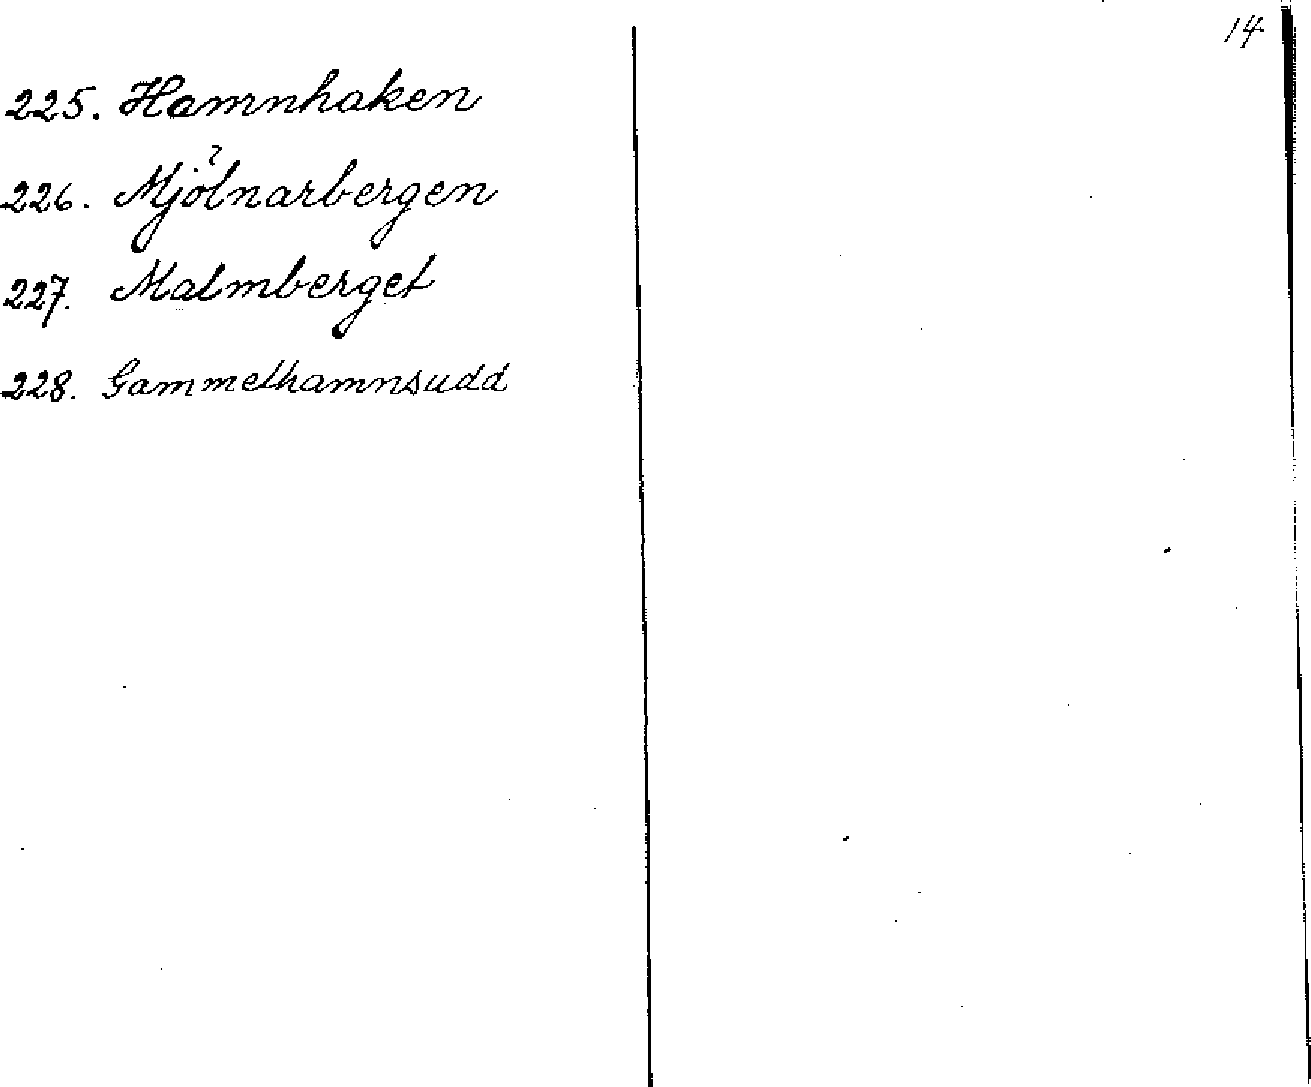 14
225. Hamnhaken
226. Mjölnarbergen
227. Malmberget
228. Gammelhamnsudd